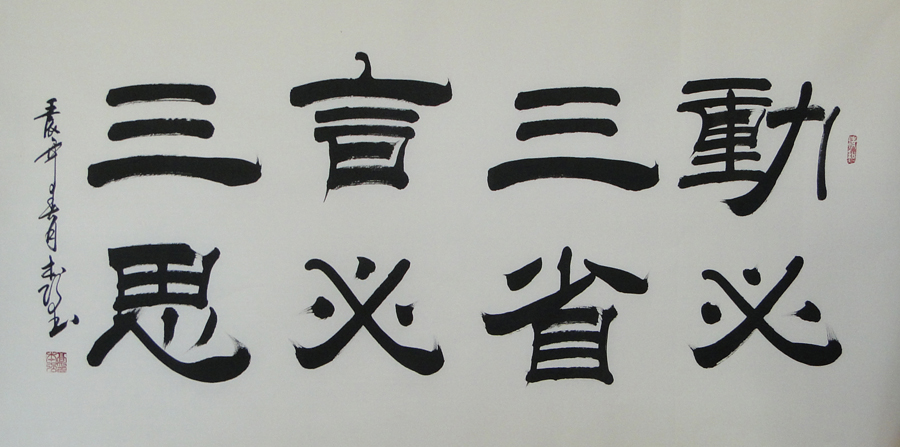 動必
三省
言必
三思
壬辰年春月